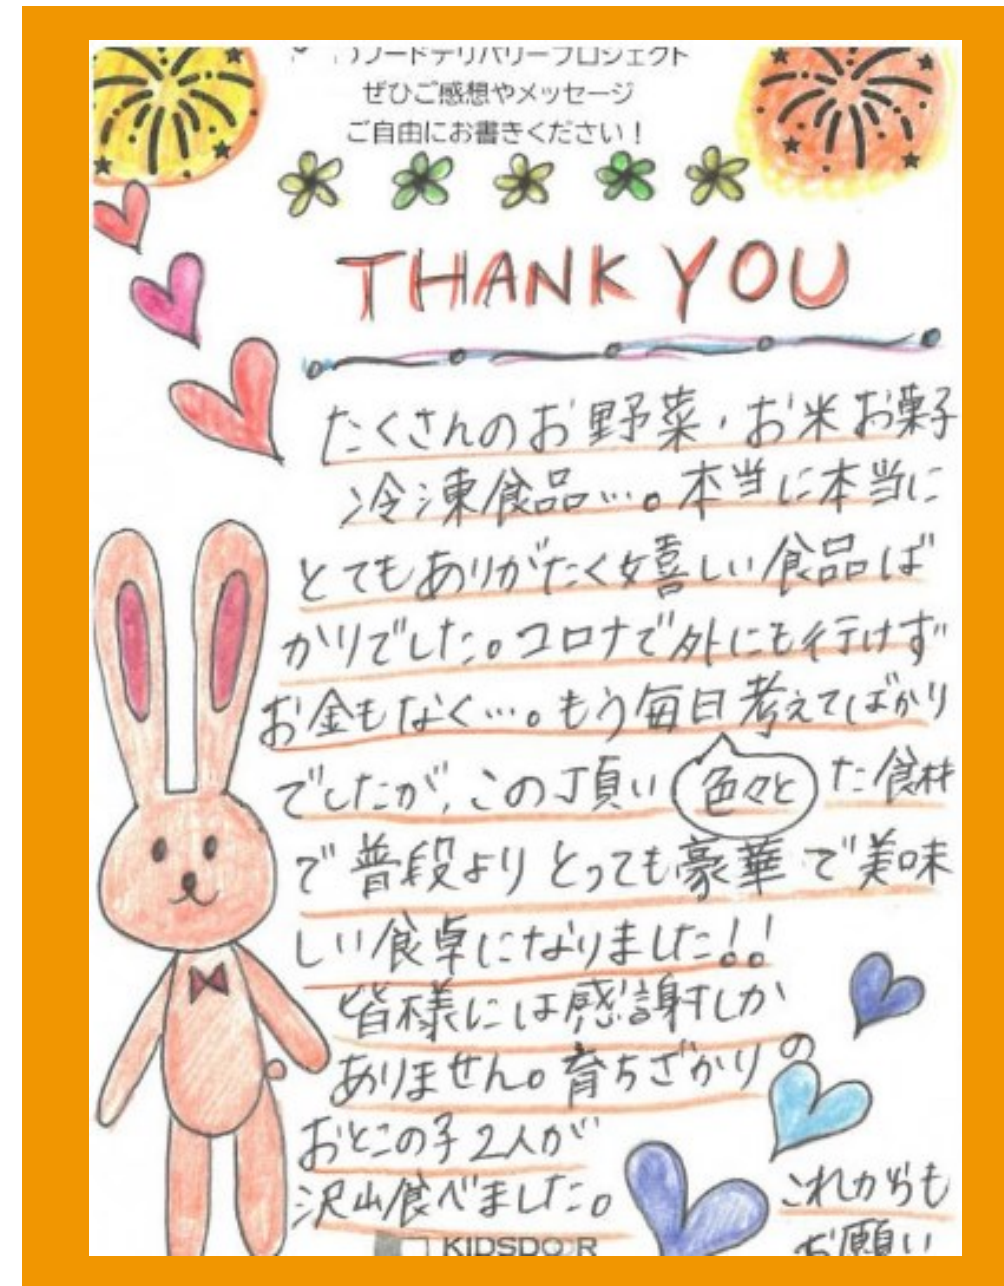 フードデリバリープロジェクト
ぜひご感想やメッセージ
ご自由にお書きください！
THANK YOU
たくさんのお野菜・お米お菓子
冷凍食品…。本当に本当に
とてもありがたく嬉しい食品ば
かりでした。コロナで外にも行けず
お金もなく…。もう毎日考えてばかり
でしたが、この頂い 色々と た食材
で普段よりとっても豪華で美味
しい食卓になりました!!
皆様には感謝しか
ありません。育ちざかりの
おとこの子2人が
沢山食べました。
これからも
お願い
KIDSDOOR